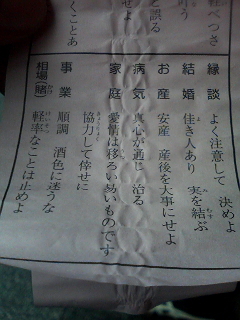 べつさ
叶う
と誤る
せよ
くことあ
縁談 よく注意して 決めよ
結婚 佳き人あり 実を結ぶ
お産 安産 産後を大事にせよ
病気 真心が通じ 治る
家庭 愛情は移ろい易いものです
協力して倖せに
事業 順調 酒色に迷うな
相場(賭) 軽率なことは止めよ